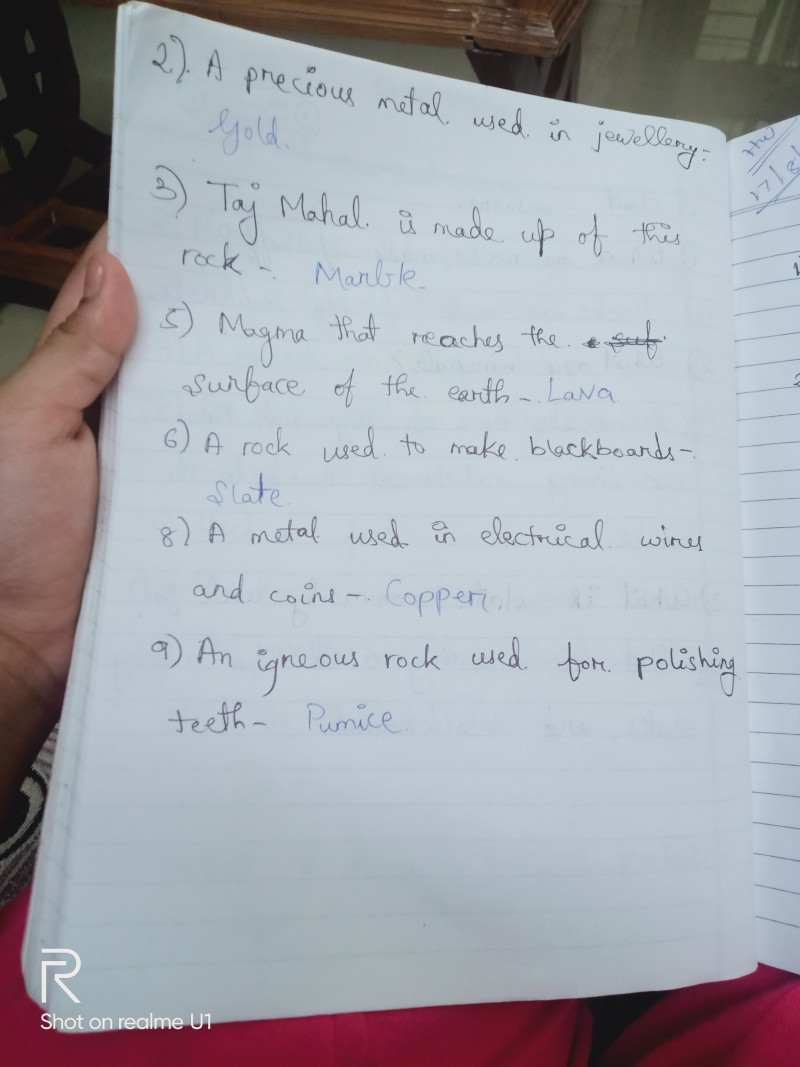 2). A precious metal used in jewellery-
Gold.
3) Taj Mahal is made up of this
rock - Marble
5) Magma that reaches the
surface of the earth - Lava
6) A rock used to make blackboards-
Slate
8) A metal used in electrical wires
and coins - Copper.
9) An igneous rock used for polishing
teeth - Pumice
HW
R
Shot on realme U1